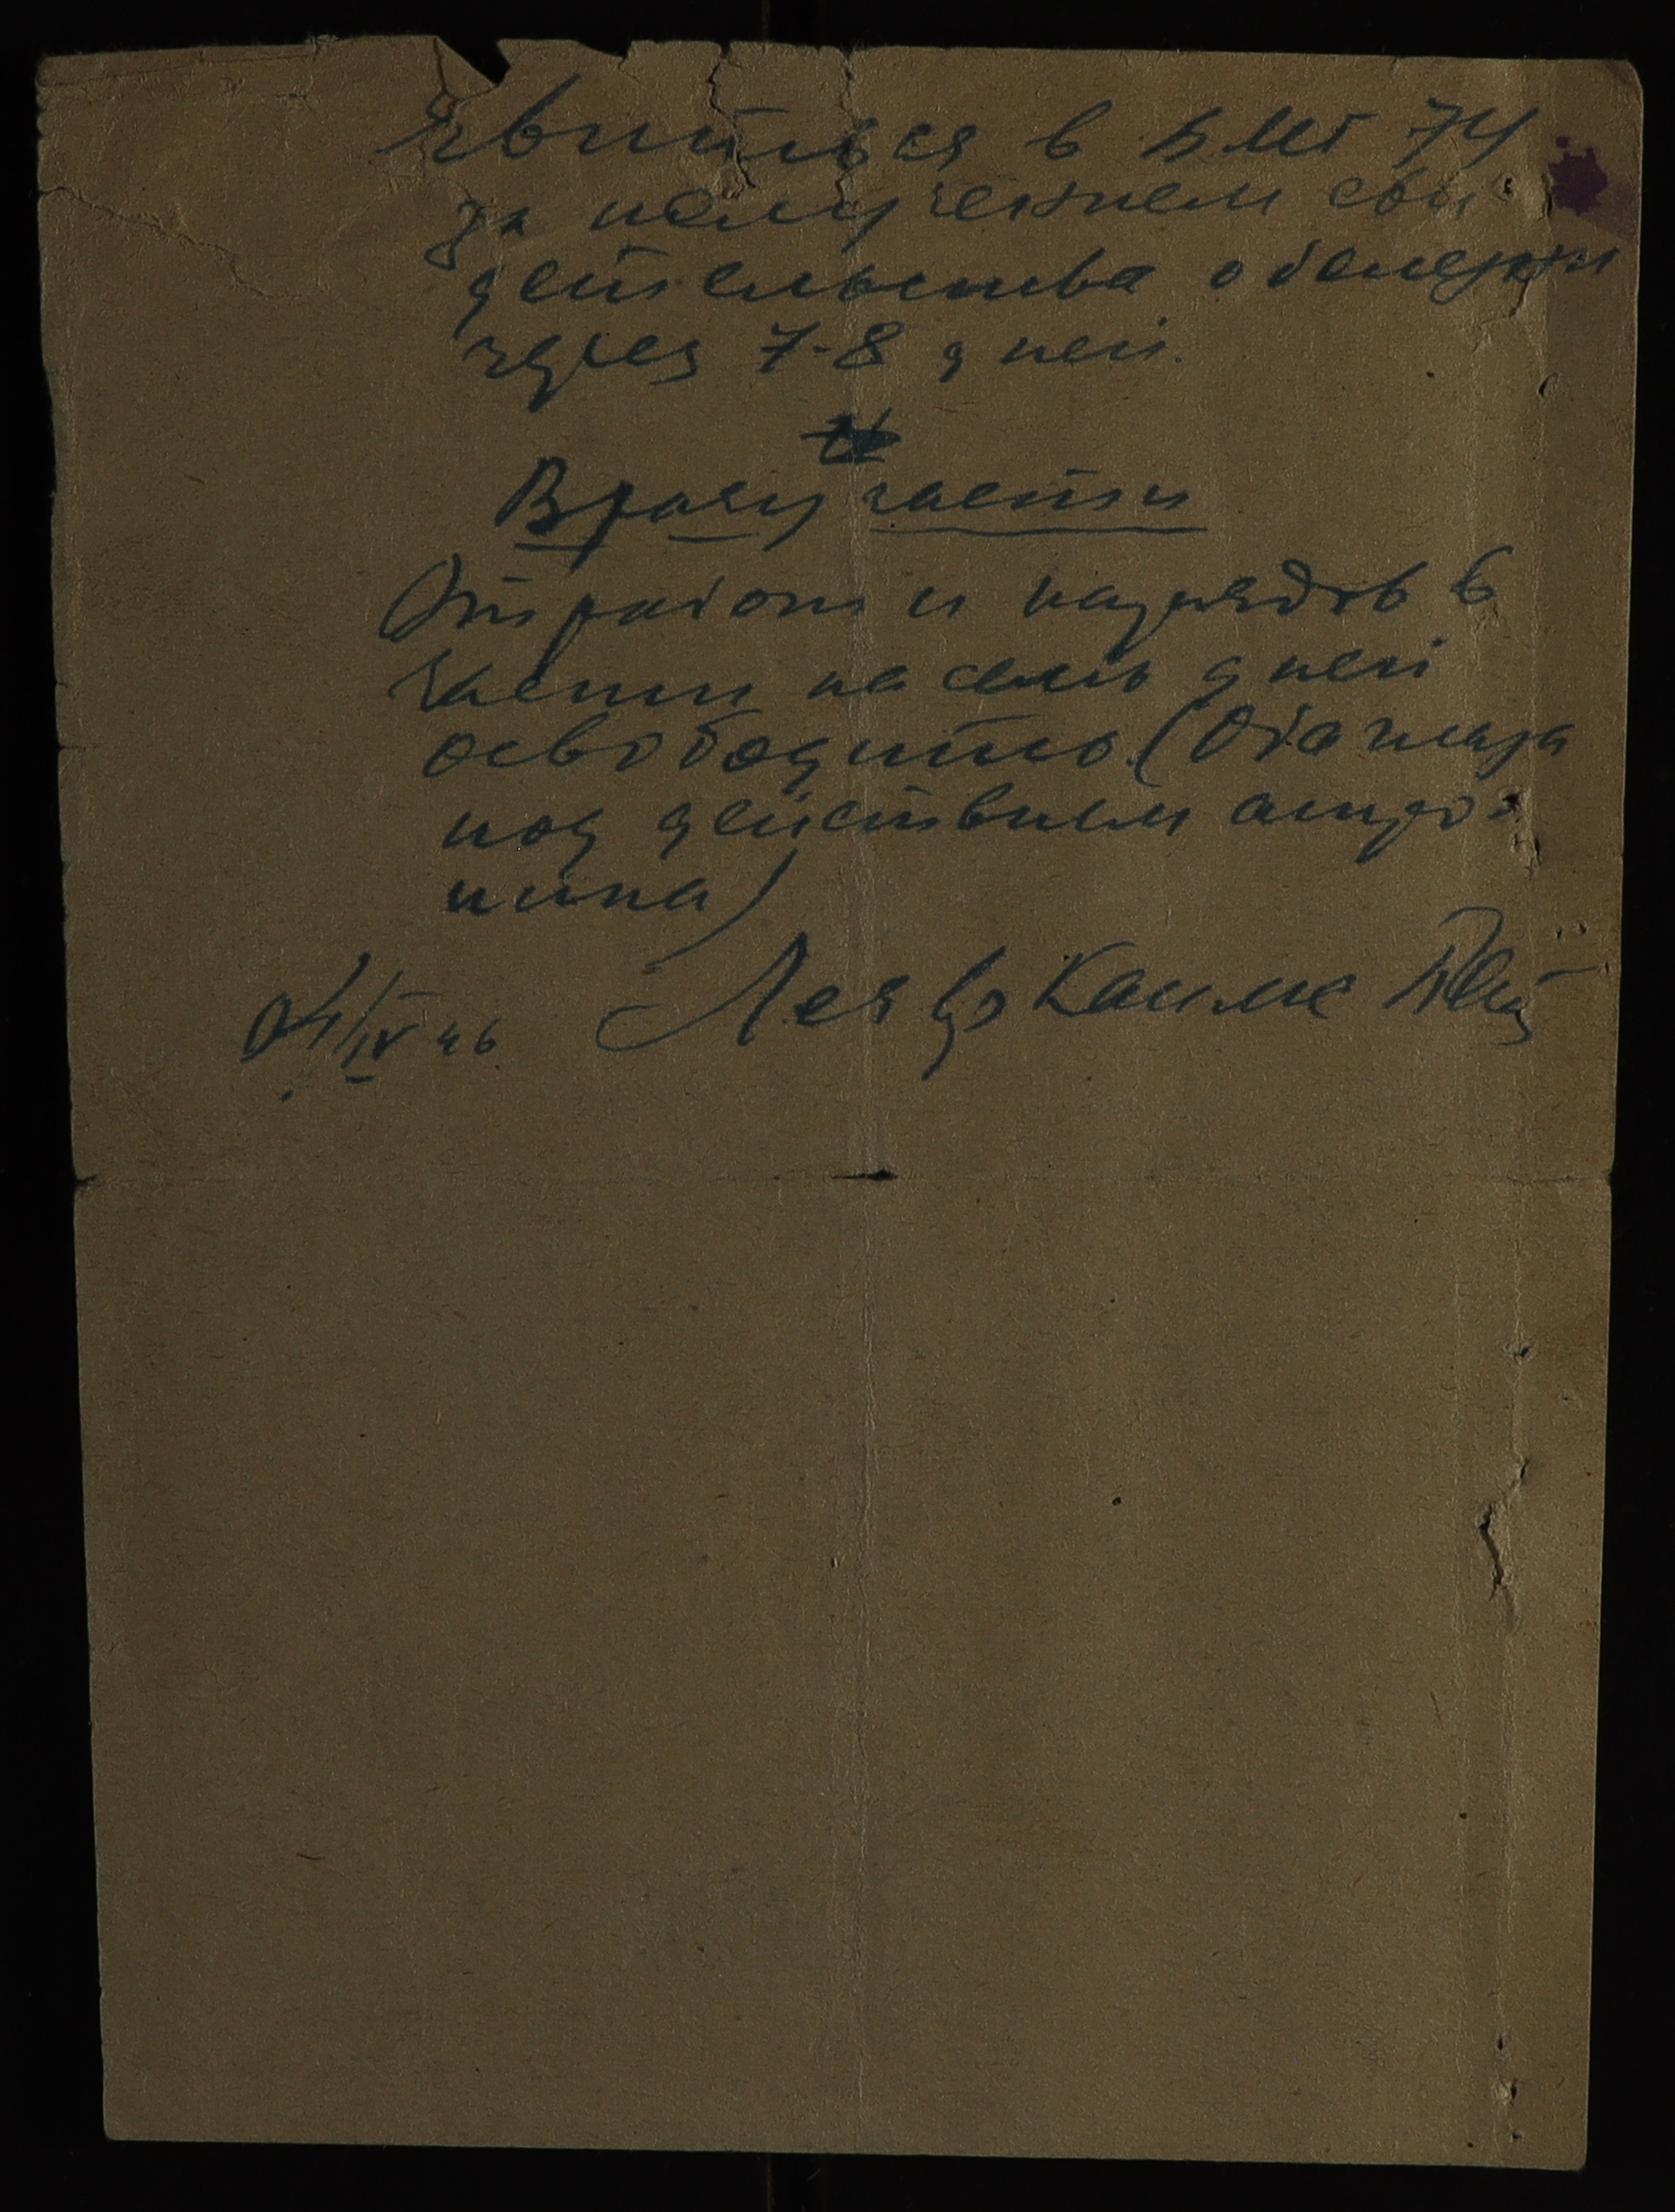 Явиться в БМГ 74
за получением сви-
детельства о болезни
через 7-8 дней.
Врачу части
От работ и нарядов в
части на семь дней
освободить (Оба глаза
под действием атро-
пина)
IV 46